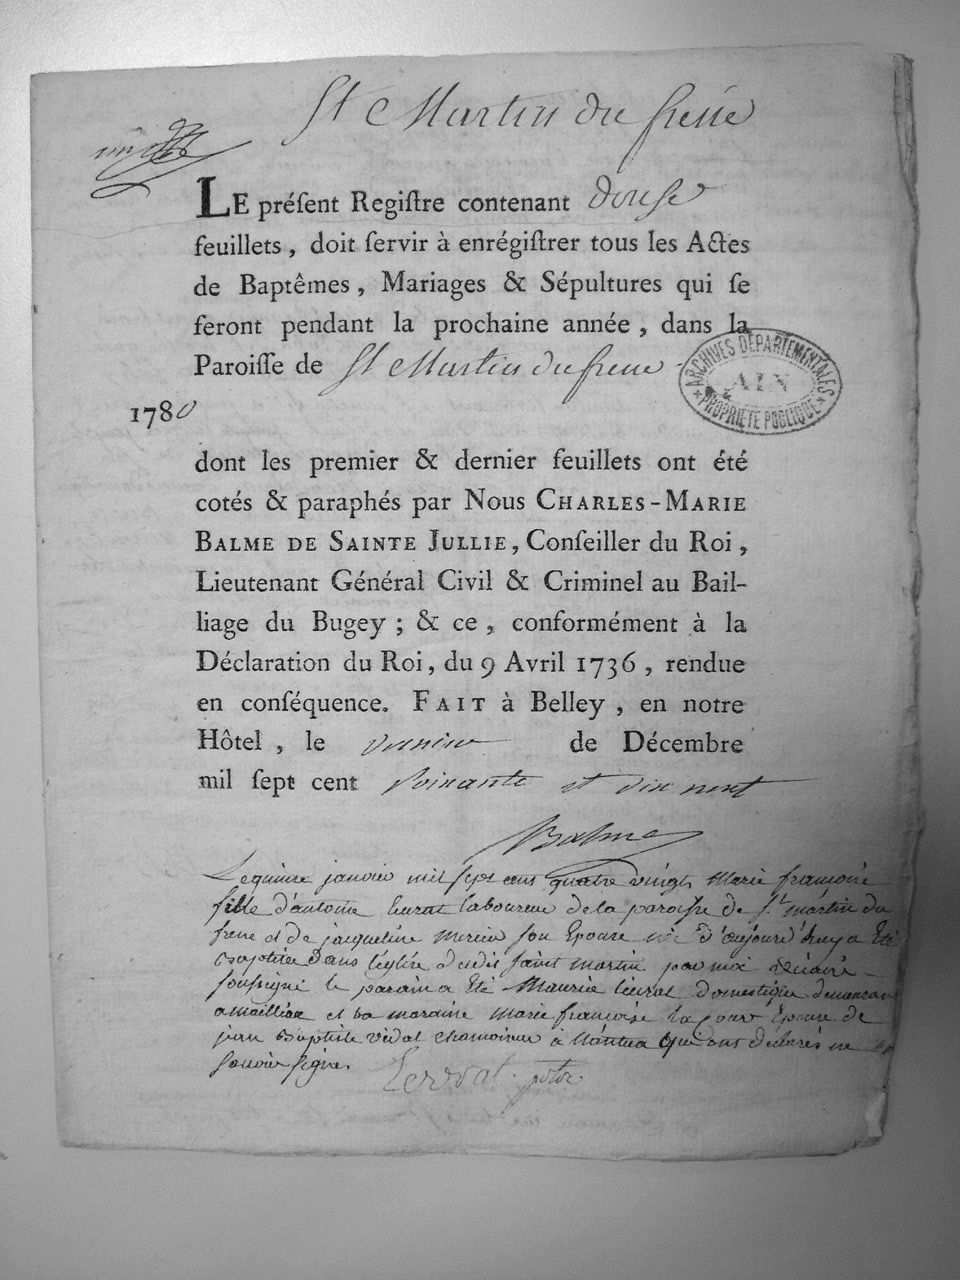 St Martin du frene
LE préſent Regiſtre contenant douse
feuillets, doit ſervir à enrégiſtrer tous les Actes
de Baptêmes, Mariages & Sépultures qui ſe
feront pendant la prochaine année, dans la
Paroiſſe de St Martin du frene
ARCHIVES DÉPARTEMENTALES
AIN
PROPRIÉTÉ PUBLIQUE
1780
dont les premier & dernier feuillets ont été
cotés & paraphés par Nous CHARLES-MARIE
BALME DE SAINTE JULLIE, Conſeiller du Roi,
Lieutenant Général Civil & Criminel au Bail-
liage du Bugey; & ce, conformément à la
Déclaration du Roi, du 9 Avril 1736, rendue
en conſéquence. FAIT à Belley, en notre
Hôtel, le dernier de Décembre
mil ſept cent soixante et dix neuf
Balme
Le quinze janvier mil sept cens quatre vingts Marie françoise
fille d'antoine laboureur de la paroisse de St martin du
frene et de jacqueline mercier son Epouse née d'aujourd'huy a Eté
Baptisée Dans l'église dudit saint martin par moi vicaire
soussigné le parain a Eté Maurice domestique demeurant
a maillia et la maraine Marie françoise Epouse de
jean Baptiste vidal chamoiseur à Nantua qui ont déclarés ne
savoir signer